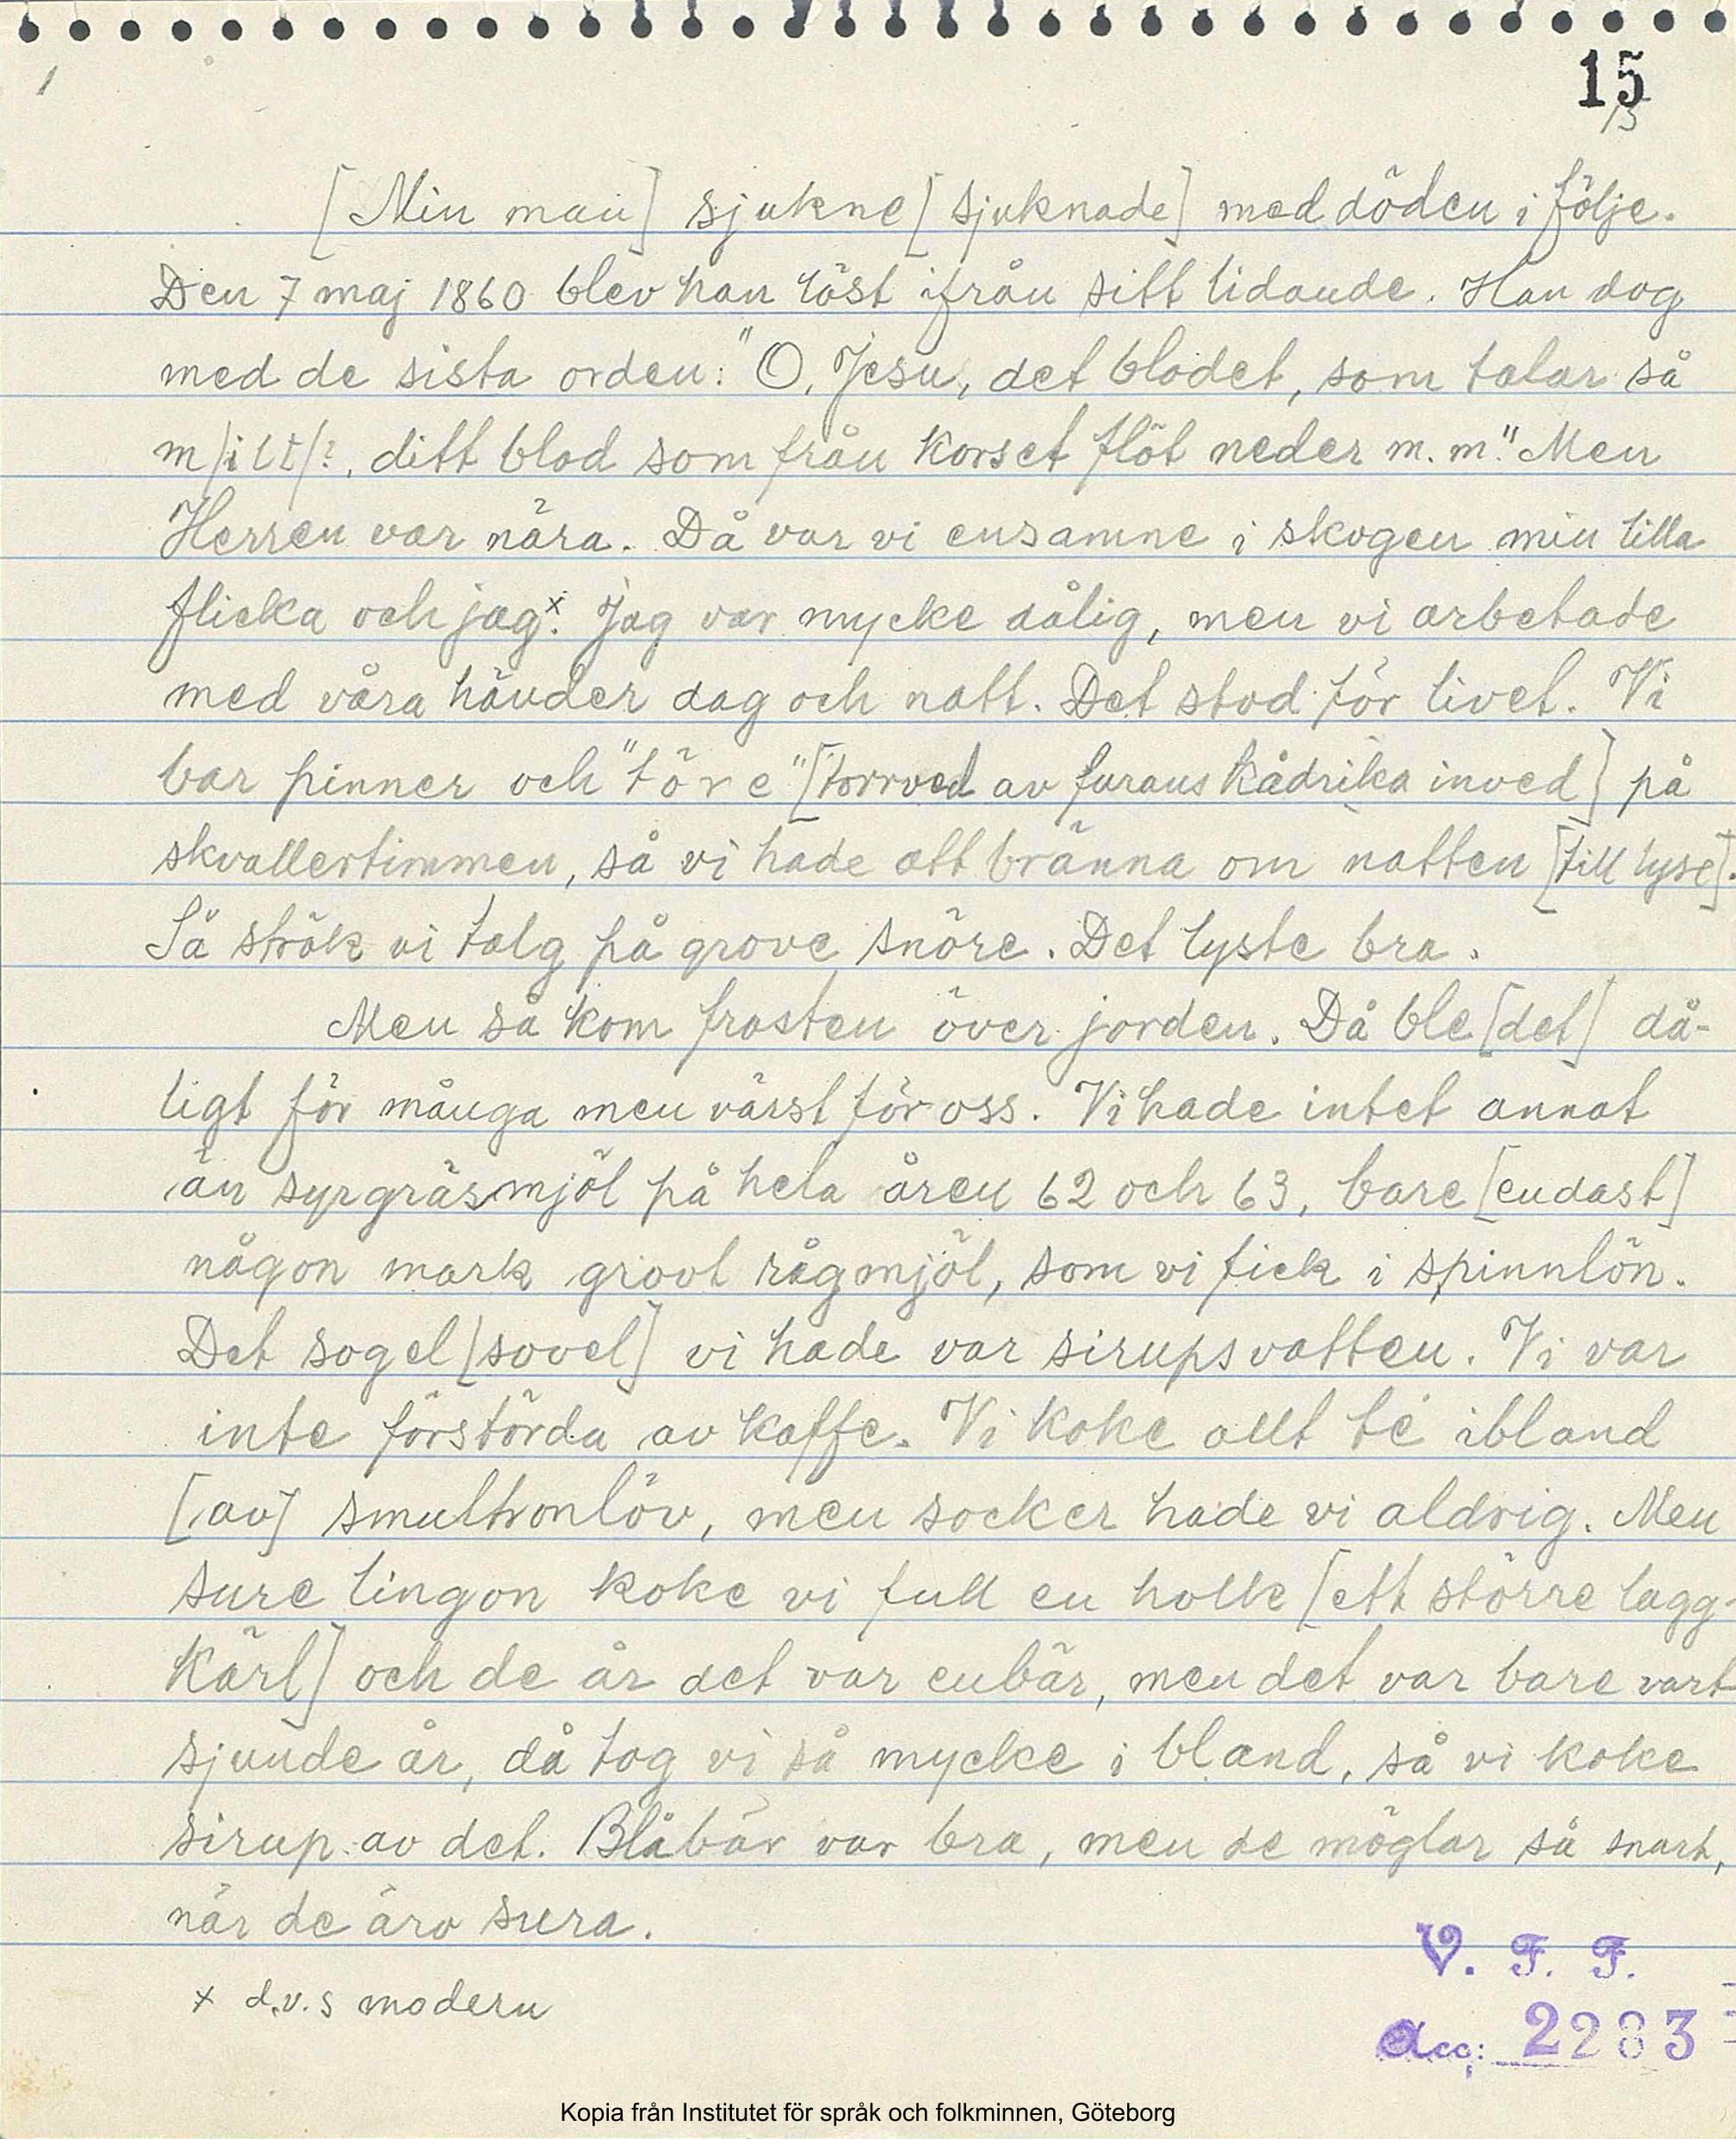 1
15
15
[Min man] sjukne [sjuknade] med döden i följe.
Den 7 maj 1860 blev han löst ifrån sitt lidande. Han dog
med de sista orden: "O, Jesu, det blodet, som talar så
m/ilt/?, ditt blod som från korset flöt neder m.m." Men
Herren var nära. Då var vi ensamne i skogen min lilla
flicka och jag x. Jag var mycke dålig, men vi arbetade
med våra händer dag och natt. Det stod för livet. Vi
bar pinner och "töre" [torrved av furans kådrika inved] på
skvallertimmen, så vi hade att bränna om natten [till lyse].
Så strök vi talg på grove snöre. Det lyste bra.
Men så kom frosten över jorden. Då ble [det] då-
ligt för många men värst för oss. Vi hade intet annat
än syrgräsmjöl på hela åren 62 och 63, bare [endast]
någon mark grovt rågmjöl, som vi fick i spinnlön.
Det sogel [sovel] vi hade var sirupsvatten. Vi var
inte förstörda av kaffe. Vi koke allt té ibland
[av] smultronlöv, men socker hade vi aldrig. Men
sure lingon koke vi full en holk [ett större lagg-
kärl] och de år det var enbär, men det var bare vart
sjunde år, då tog vi så mycke i bland, så vi koke
sirup av det. Blåbär var bra, men de möglar så snart,
när de äro sura.
x d.v.s modern
V. F. F.
Acc: 2283
Kopia från Institutet för språk och folkminnen, Göteborg